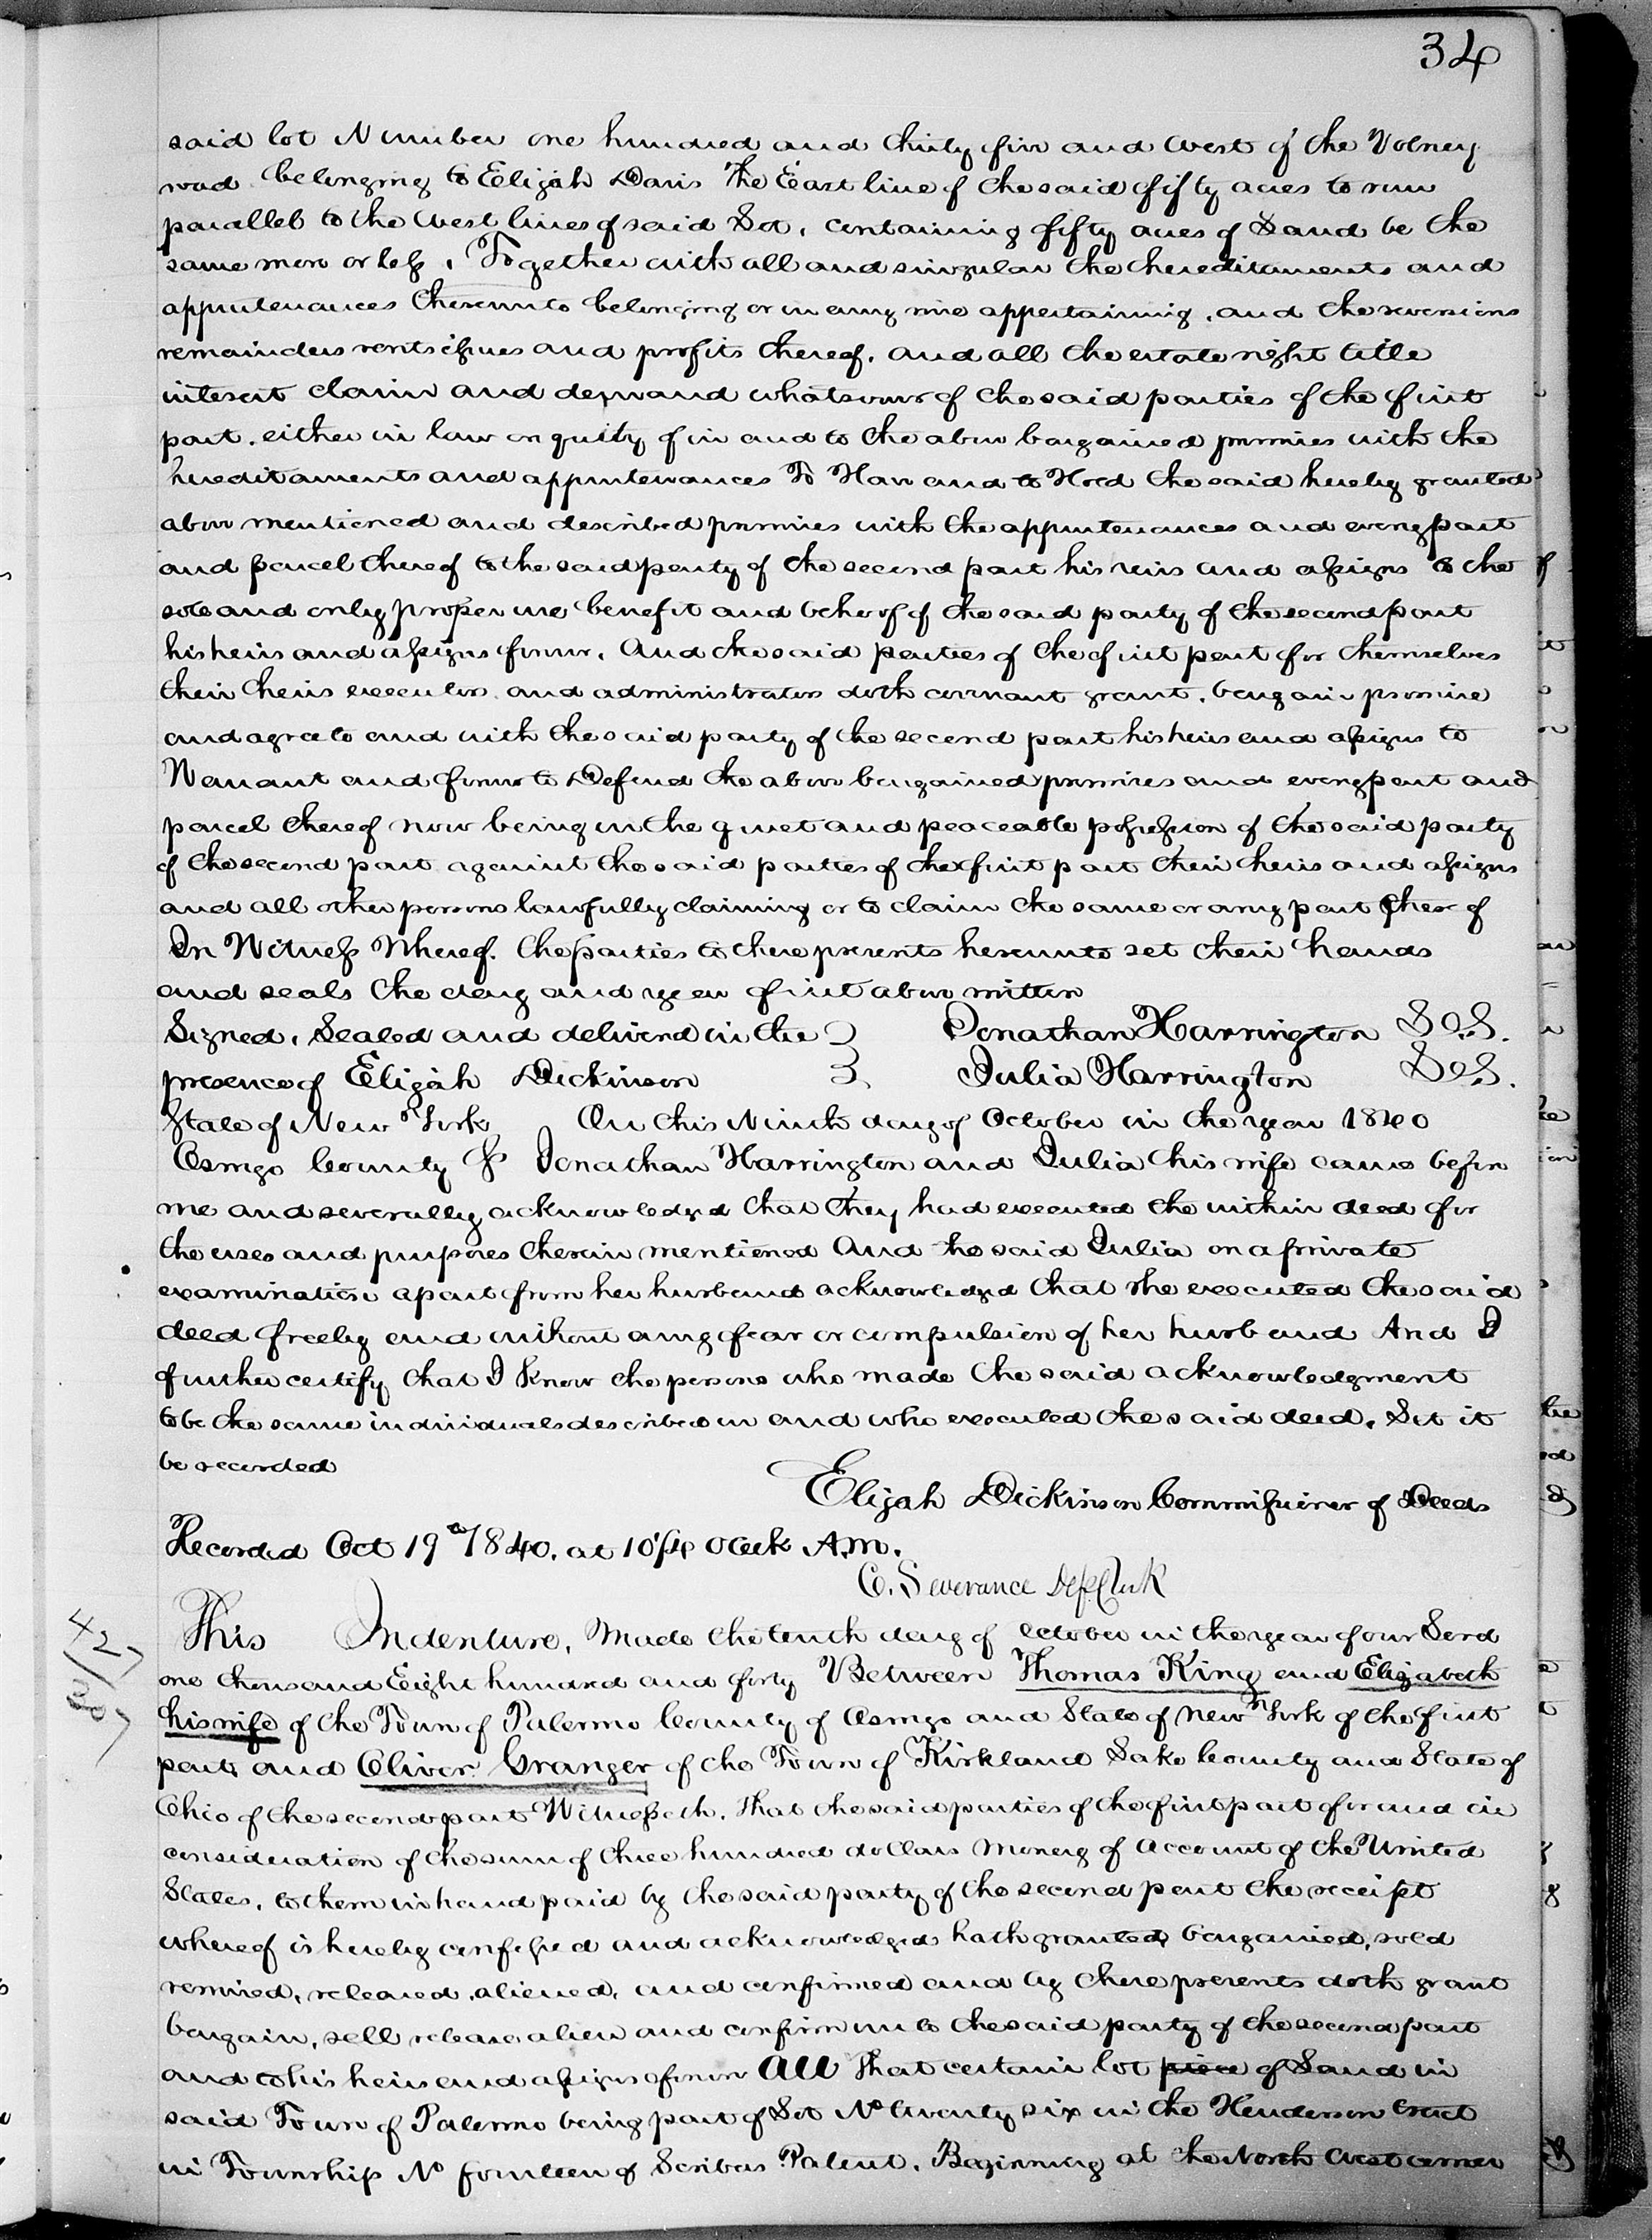 34
said lot Number one hundred and thirty five and West of the Volney
road belonging to Elijah Davis The East line of the said fifty acres to run
parallel to the West lines of said Lot, containing fifty acres of Land be the
same more or less, Together with all and singular the hereditaments and
appurtenances thereunto belonging or in any wise appertaining, and the reversions
remainders rents issues and profits thereof. and all the estate right title
interest claim and demand whatsoever of the said parties of the first
part. either in law or equity of in and to the above bargained premises with the
hereditaments and appurtenances To Have and to Hold the said hereby granted
above mentioned and described premises with the appurtenances and every part
and parcel thereof to the said party of the second part his heirs and assigns to the
sole and only proper use benefit and behoof of the said party of the second part
his heirs and assigns forever. And the said parties of the first part for themselves
their heirs executors and administrators doth covenant grant, bargain promise
and agree to and with the said party of the second part his heirs and assigns to
Warrant and forever to Defend the above bargained premises and every part and
parcel thereof now being in the quiet and peaceable possession of the said party
of the second part against the said parties of the first part their heirs and assigns
and all other persons lawfully claiming or to claim the same or any part thereof
In Witness Whereof. the parties to these presents hereunto set their hands
and seals the day and year first above written
Signed, Sealed and delivered in the } Jonathan Harrington L.S.
presence of Elijah Dickinson } Julia Harrington L.S.
State of New York On this Ninth day of October in the year 1840
Oswego County Ss Jonathan Harrington and Julia his wife came before
me and severally acknowledged that they had executed the within deed for
the uses and purposes therein mentioned And the said Julia on a private
examination apart from her husband acknowledged that she executed the said
deed freely and without any fear or compulsion of her husband And I
further certify that I know the persons who made the said acknowledgment
to be the same individuals described in and who executed the said deed. Let it
be recorded
Elijah Dickinson Commissioner of Deeds
Recorded Oct 19th 1840. at 10 1/4 oClk A.M.
C. Severance Dep. Clerk
This Indenture, Made the tenth day of October in the year of our Lord
one thousand Eight hundred and forty Between Thomas King and Elizabeth
his wife of the Town of Palermo County of Oswego and State of New York of the first
part and Oliver Granger of the Town of Kirkland Lake County and State of
Ohio of the second part Witnesseth. That the said parties of the first part for and in
consideration of the sum of three hundred dollars Money of Account of the United
States, to them in hand paid by the said party of the second part the receipt
whereof is hereby confessed and acknowledged hath granted, bargained, sold
remised, released, aliened, and confirmed and by these presents doth grant
bargain, sell release alien and confirm unto the said party of the second part
and to his heirs and assigns forever All that certain lot piece of Land in
said Town of Palermo being part of Lot No twenty six in the Henderson tract
in Township No fourteen of Scribas Patent. Beginning at the North West corner